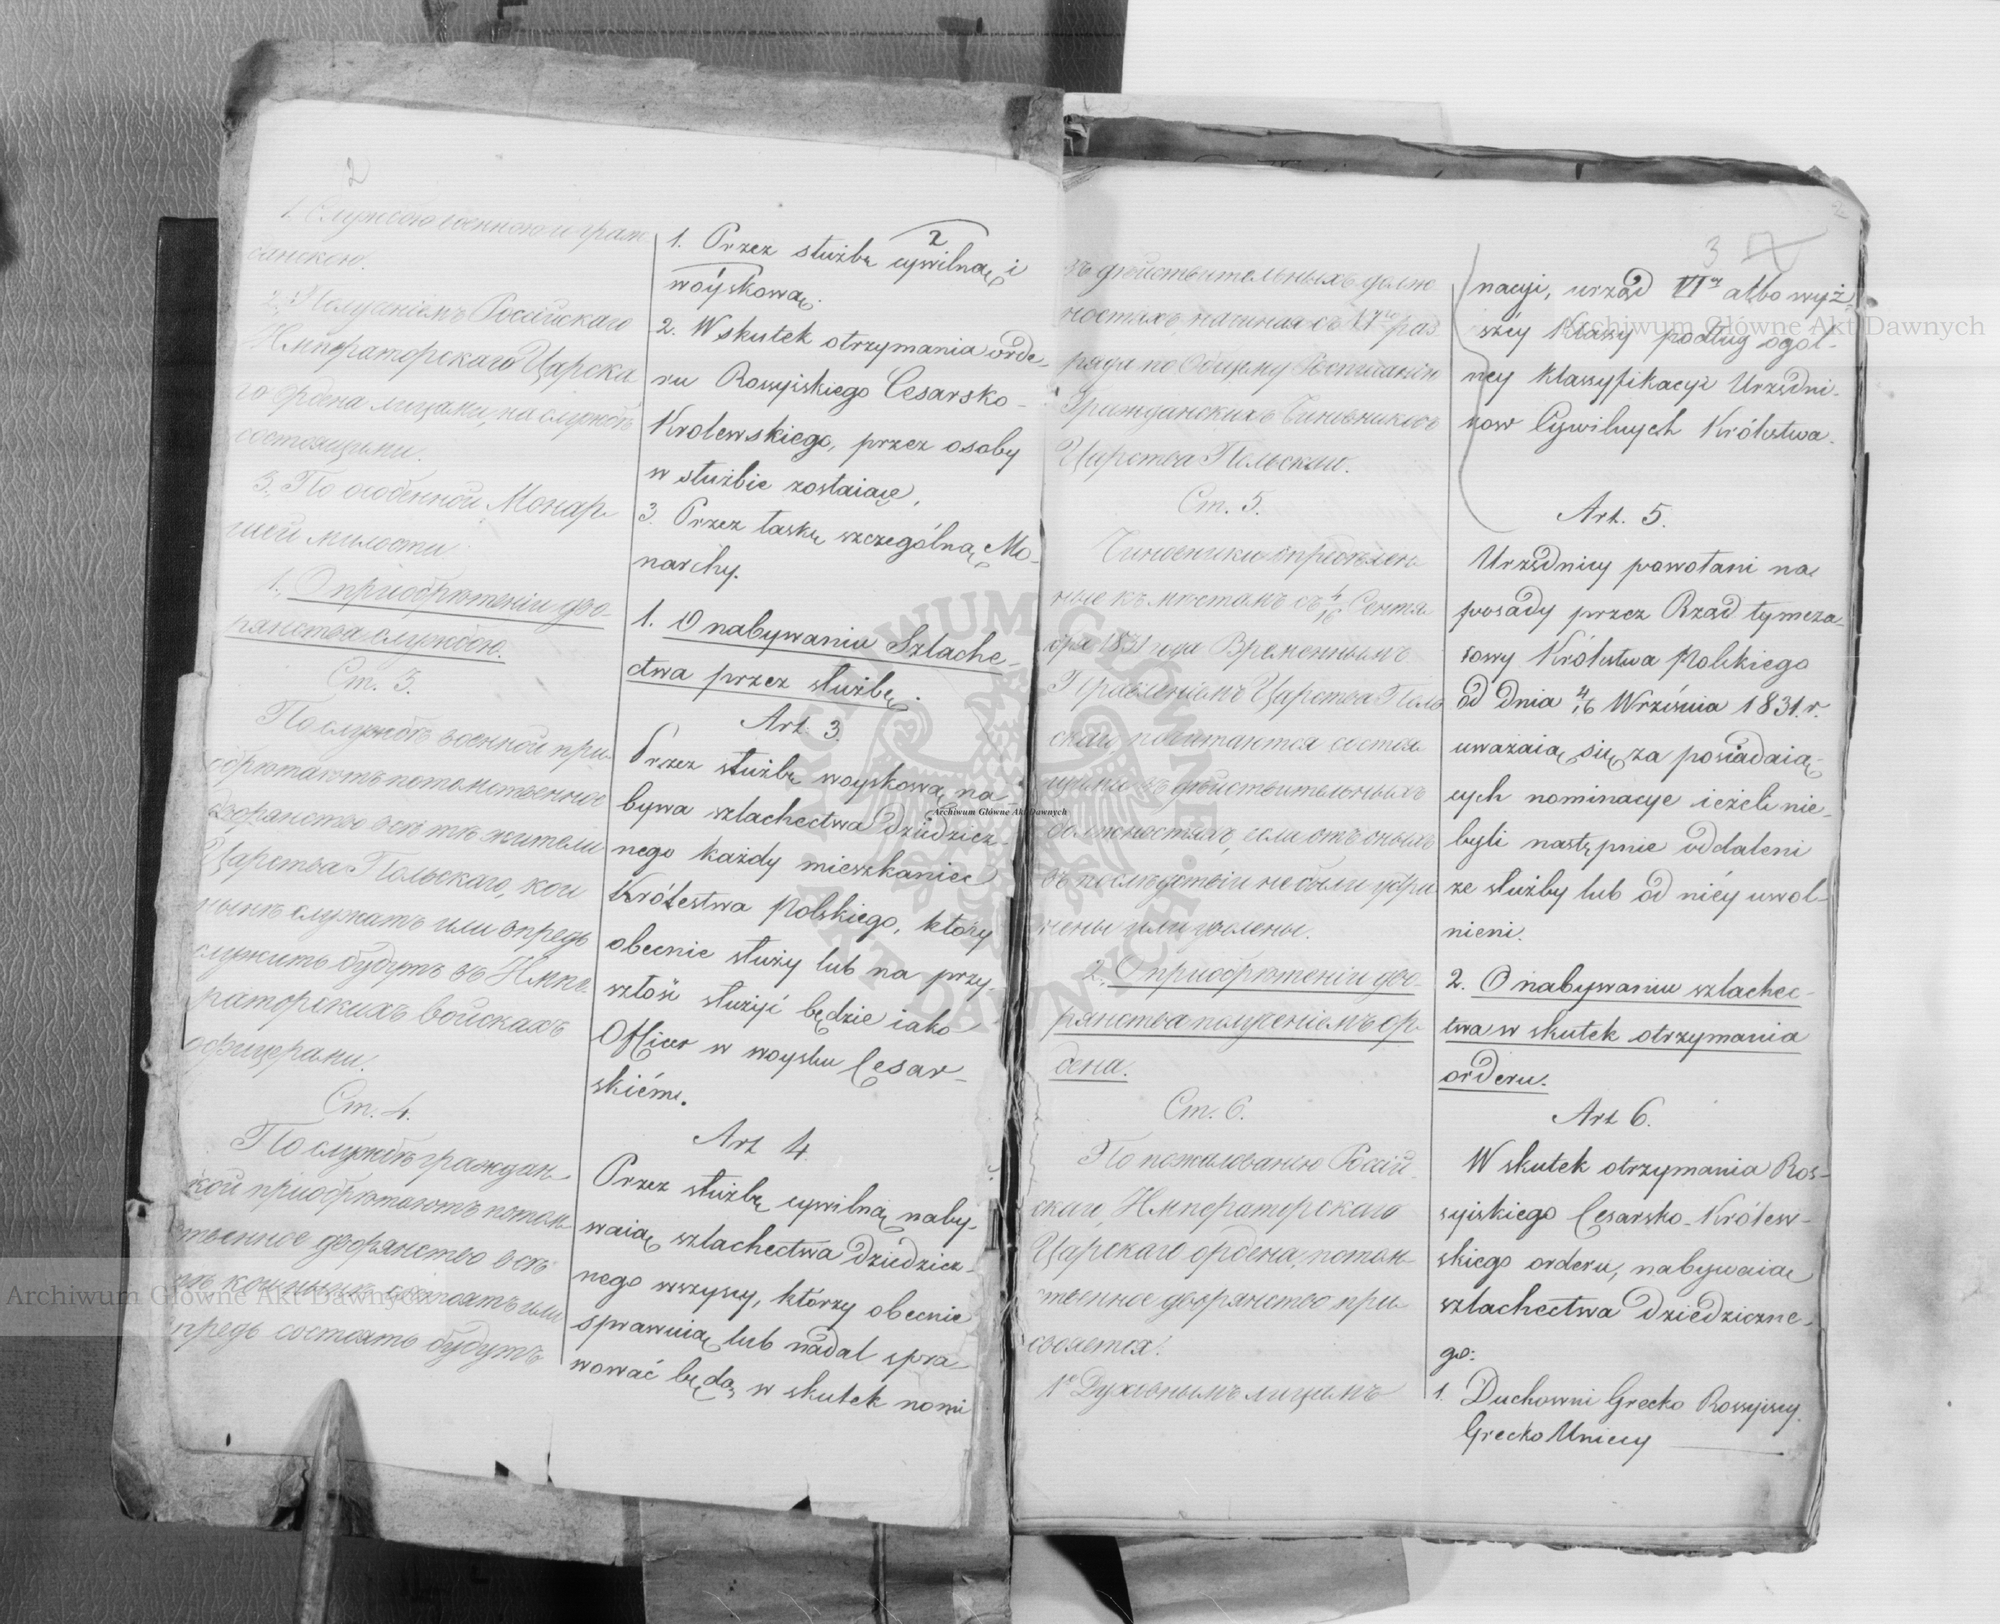 2
1. Службою военною и граж
данскою.
2. Полученіемъ Россійскаго
Императорскаго Царска
го ордена лицами, на службѣ
состоящими.
3. По особенной Монар
шей милости
1. О приобрѣтеніи дво-
рянства службою.
Ст. 3.
По службѣ военной при-
обрѣтаютъ потомственное
дворянство всѣ тѣ жители
Царства Польскаго, кои
нынѣ служатъ или впредь
служить будутъ въ Импе-
раторскихъ войскахъ
офицерами.
Ст. 4.
По службѣ граждан-
ской приобрѣтаютъ потом-
ственное дворянство всѣ
тѣ кои нынѣ состоятъ или
впредь состоять будутъ
2
1. Przez służbę cywilną i
woyskową.
2. W skutek otrzymania orde-
ru Rossyiskiego Cesarsko-
Królewskiego, przez osoby
w służbie zostaiące,
3. Przez łaskę szczególną Mo-
narchy.
1. O nabywaniu Szlache-
ctwa przez służbę.
Art. 3.
Przez służbę woyskową na
bywa szlachectwa dziedzicz-
nego każdy mieszkaniec
Królestwa Polskiego, który
obecnie służy lub na przy-
szłość służyć będzie iako
Officer w woysku Cesar-
skiém.
Art 4.
Przez służbę cywilną naby-
waią szlachectwa dziedzicz-
nego wszyscy, którzy obecnie
sprawuią lub nadal spra
wować będą, w skutek nomi
3
въ дѣйствительныхъ долж
ностяхъ, начиная съ VIго раз
ряда по Общему Росписанію
Гражданскихъ Чиновниковъ
Царства Польскаго.
Ст. 5.
Чиновники опредѣлен
ные къ мѣстамъ съ 4/16 Сентя
бря 1831 года Временнымъ
Правленіемъ Царства Поль
скаго почитаются состоя
щими въ дѣйствительныхъ
должностяхъ, если отъ оныхъ
въ послѣдствіи не были устра
нены или уволены.
2. О приобрѣтеніи дво-
рянства полученіемъ ор-
дена.
Ст. 6.
По пожалованію Россій-
скаго, Императорскаго
Царскаго ордена, потом-
ственное дворянство при-
своется:
1е Духовнымъ лицамъ
nacyi, urząd VIey albo wyż-
széy Klassy podług ogól-
néy klassyfikacyi Urzędni-
ków Cywilnych Królestwa.
Art. 5.
Urzędnicy powołani na
posady przez Rząd tymcza-
sowy Królestwa Polskiego
od dnia 4/16 Września 1831. r.
uważaią się za posiadaią-
cych nominacye ieżeli nie-
byli następnie oddaleni
ze służby lub od niéy uwol-
nieni.
2. O nabywaniu szlachec-
twa w skutek otrzymania
orderu.
Art 6.
W skutek otrzymania Ros-
syiskiego Cesarsko-Królew-
skiego orderu, nabywaią
szlachectwa dziedziczne-
go:
1. Duchowni Grecko Rossyiscy.
Grecko Uniccy
Archiwum Główne Akt Dawnych
Archiwum Główne Akt Dawnych
Archiwum Główne Akt Dawnych
ARCHIWUM GŁÓWNE AKT DAWNYCH